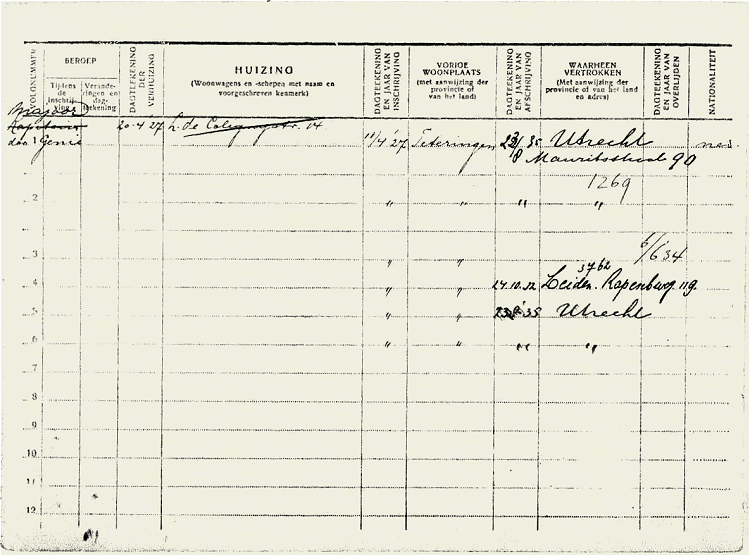 VOLGNUMMER
BEROEP
Tijdens de inschrijving
Veranderingen en dagteekening
DAGTEEKENING DER VERHUIZING
HUIZING
(Woonwagens en -schepen met naam en voorgeschreven kenmerk)
DAGTEEKENING EN JAAR VAN INSCHRIJVING
VORIGE WOONPLAATS
(met aanwijzing der provincie of van het land)
DAGTEEKENING EN JAAR VAN AFSCHRIJVING
WAARHEEN VERTROKKEN
(Met aanwijzing der provincie of van het land en adres)
DAGTEEKENING EN JAAR VAN OVERLIJDEN
NATIONALITEIT
Majoor
Kapitein
1 Genie
20-4 '27 L. de Colignystr. 14
11/4 '27 Teteringen 35 Utrecht
Mauritsstraat 90
ned.
1269
2 " " " "
6/6 '34
3 " "
3762
4 " " 24.10.32 Leiden. Rapenburg 119.
5 " " '35 Utrecht
6 " " " "
7
8
9
10
11
12